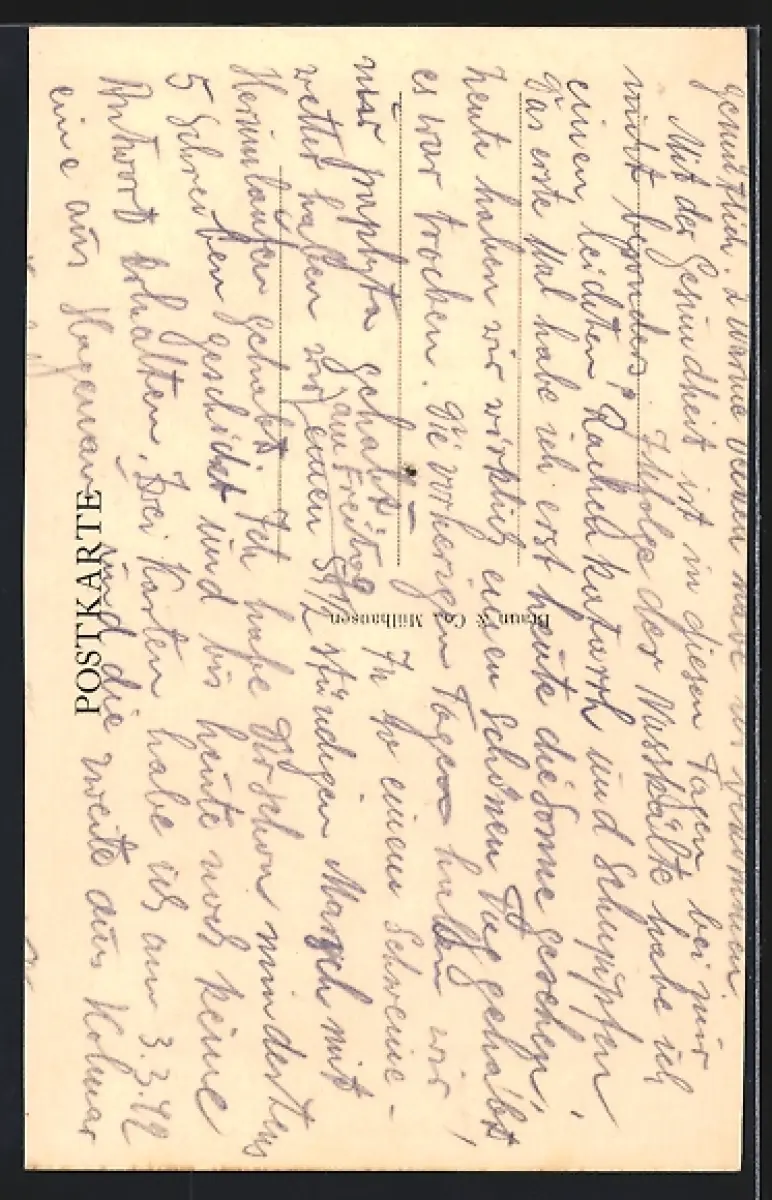 gemütlich. 2 warme
Mit der Gesundheit ist in diesen Tagen bei mir
nicht besonders! Infolge der Nasskälte habe ich
einen leichten Rachenkatarrh und Schnupfen,
Das erste Mal habe ich erst heute die Sonne gesehen,
heute haben wir wirklich einen schönen Tag gehabt
es war trocken. Die vorherigen Tagen haben wir
nur gehabt - In so einem Schweine-
wetter haben wir am Freitag einen 5 1/2 stündigen Marsch mit
Herumlaufen gehabt. Ich habe Dir schon mindestens
5 Schreiben geschickt und bis heute noch keine
Antwort erhalten. Drei Karten habe ich am 3.3.42
eine aus Hagenau und die zweite aus Kolmar
POSTKARTE
Braun & Co., Mülhausen